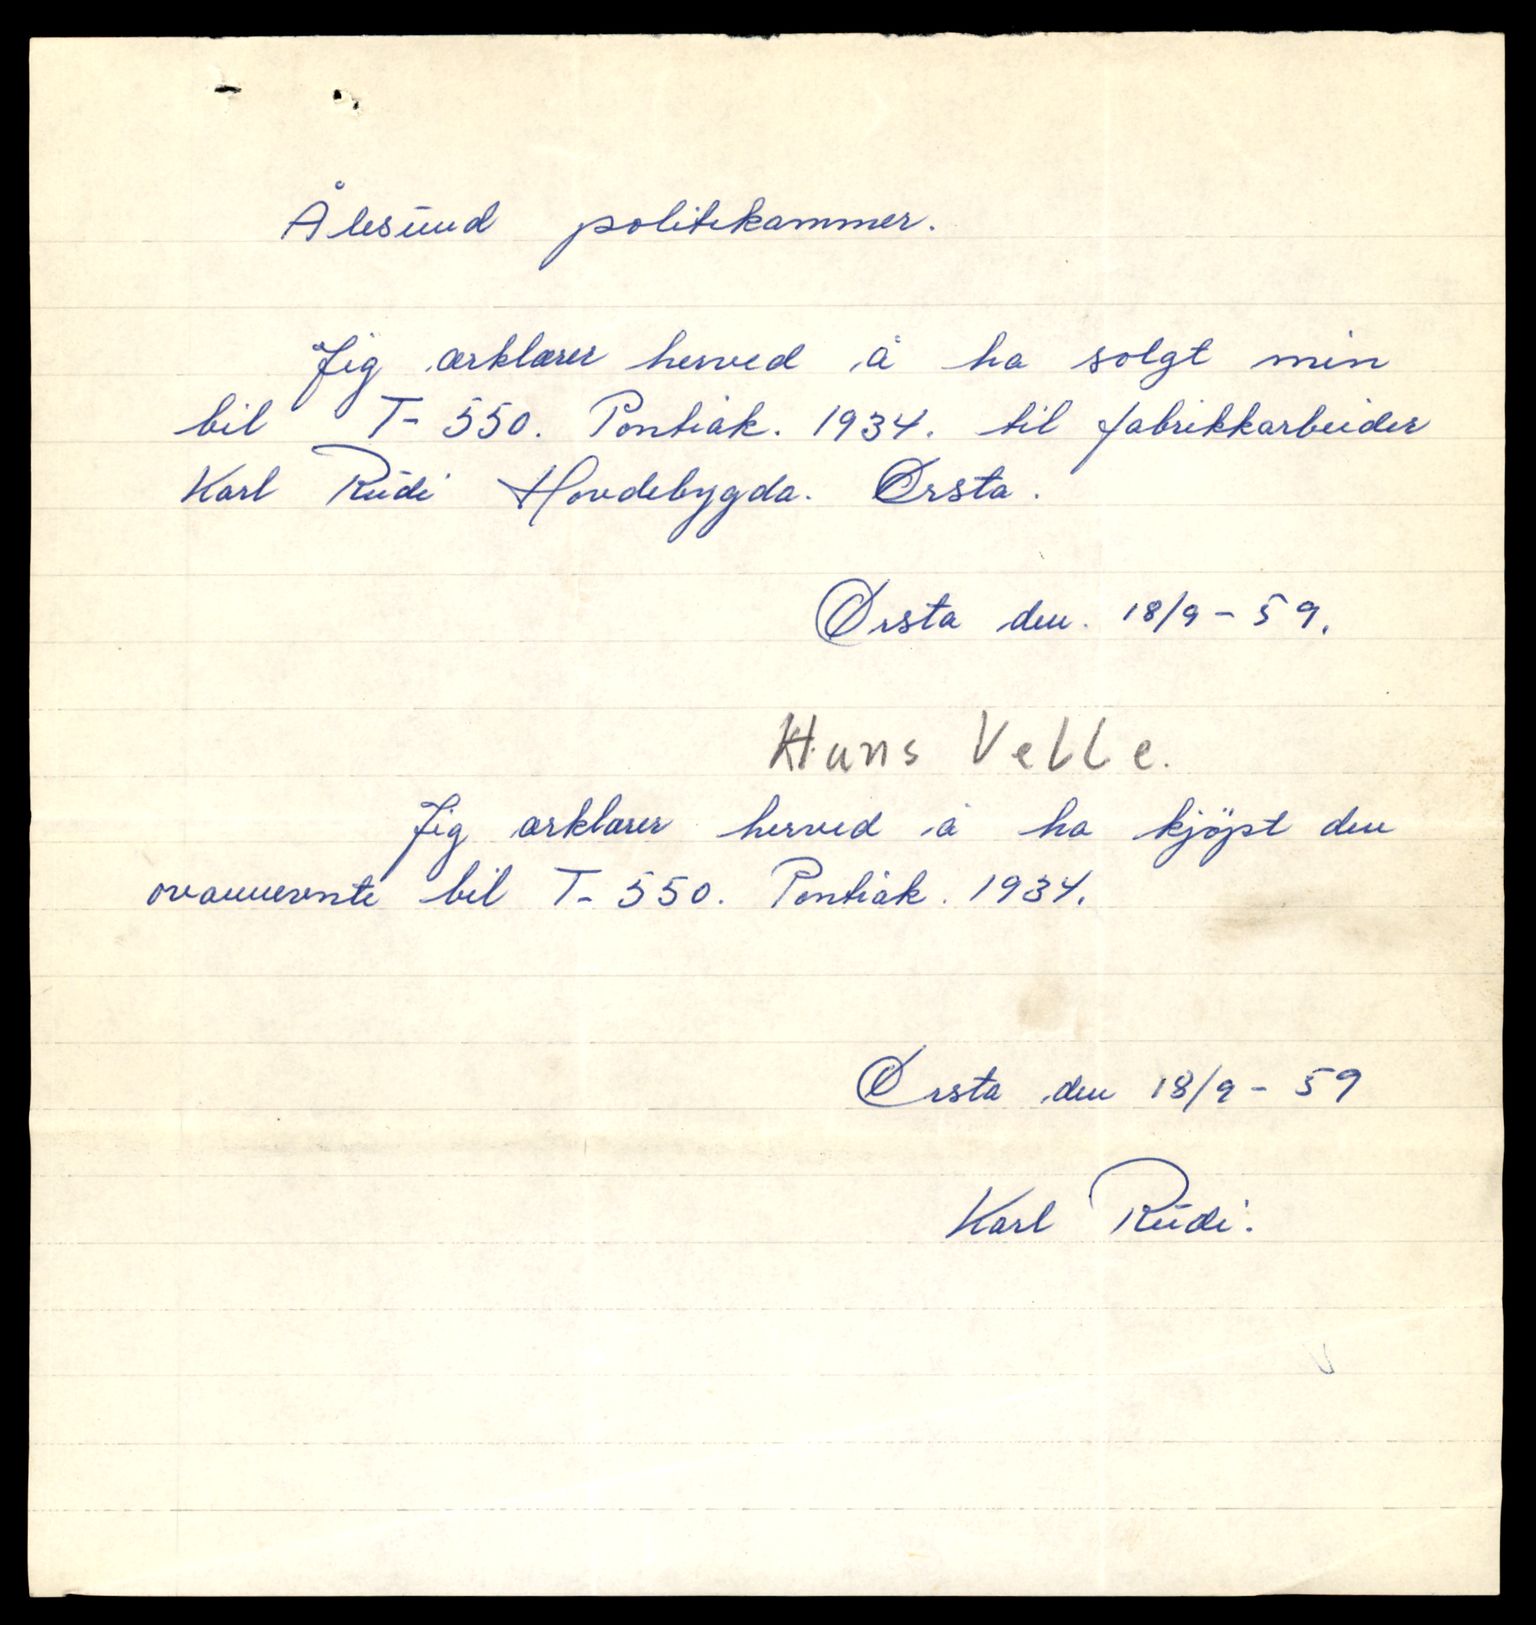 Ålesund politikammer.
Jeg ærklærer herved å ha solgt min
bil T- 550. Pontiak. 1934. til fabrikkarbeider
Karl Rudi Hovdebygda. Ørsta.
Ørsta den. 18/9 - 59.
Hans Velle.
Jeg ærklærer herved å ha kjöpt den
ovannevnte bil T- 550. Pontiak. 1934.
Ørsta den 18/9 - 59
Karl Rudi.